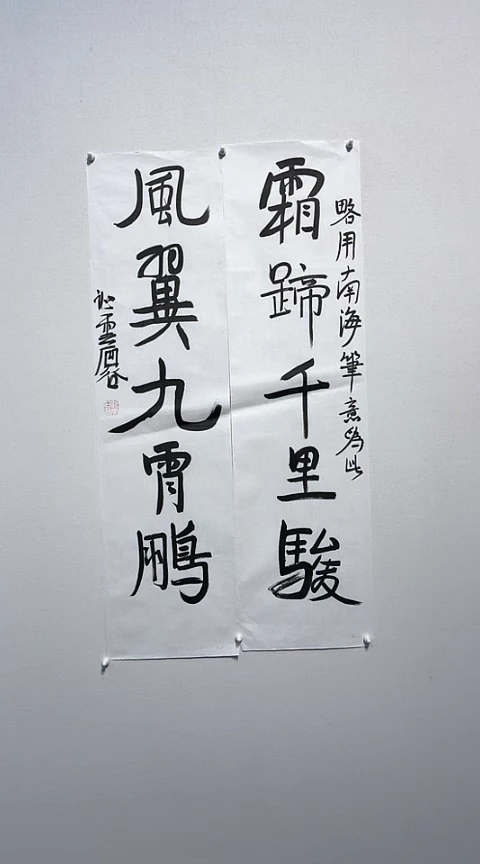 略用南海筆意為此
霜蹄千里駿
風翼九霄鵬